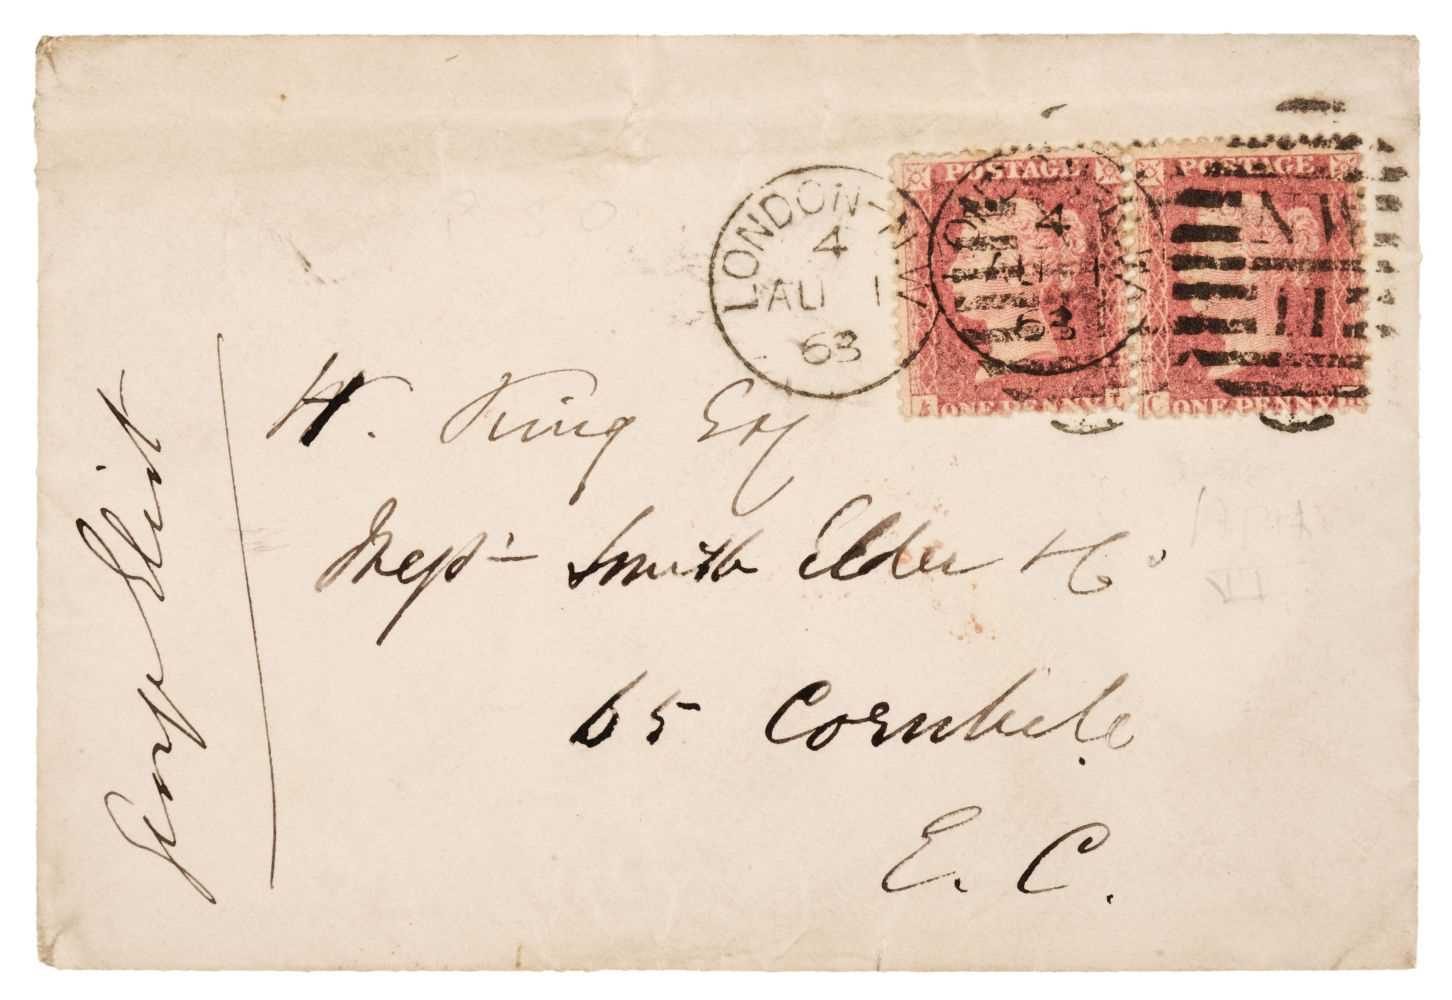 POSTAGE
POSTAGE
LONDON-NW
4
AU 1
63
4
63
NW
ONE PENNY
ONE PENNY
H. King Esq
Messrs Smith Elder & Co
65 Cornhill
E. C.
George Eliot